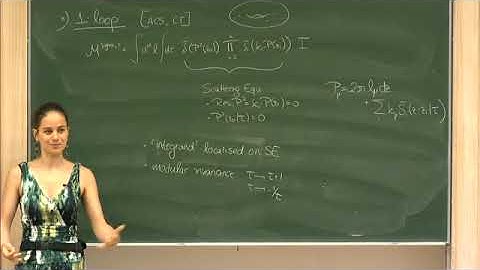 1-loop [ACS, CT]
M = ∫ dᴰl ∫ dτ δ̄(P²(z₀)) ∏ δ̄(kᵢ·P(zᵢ)) I
Scattering Equ
• Res P² = kᵢ·P(zᵢ) = 0
• P²(z₀|τ) = 0
P = 2πi l dz
+ Σ kᵢ
• "integrand" localised on SE
• modular invariance τ → τ+1
τ → -1/τ